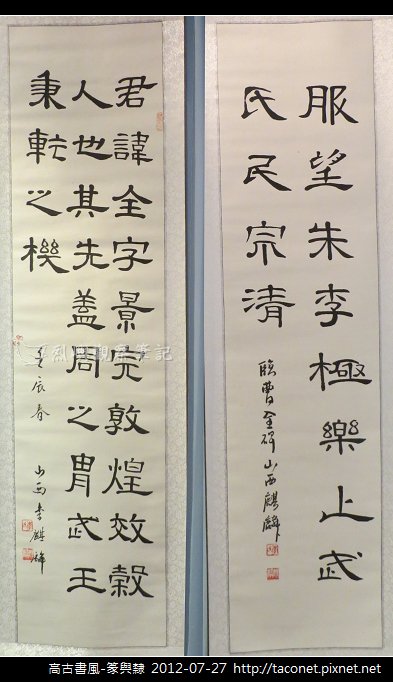 服望朱李極樂上武
氏民宗清
臨曹全碑 山西麒麟
君諱全字景完敦煌效穀
人也其先蓋周之胄武王
秉乾之機
壬辰春 山西李麒麟
烈嶼觀察筆記
高古書風-篆與隸 2012-07-27 http://taconet.pixnet.net